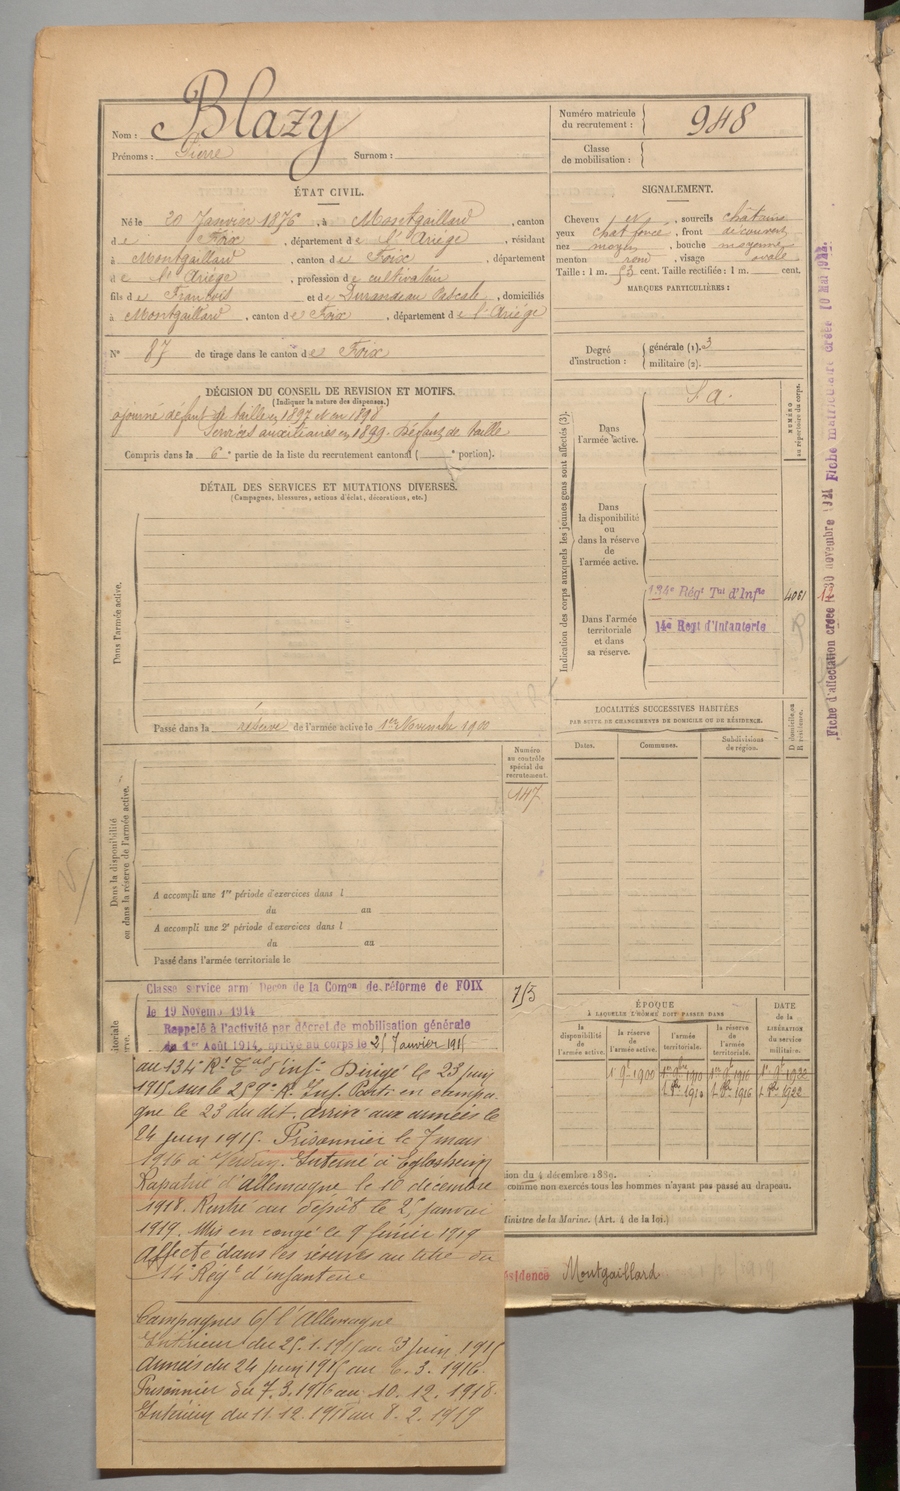 Nom : Blazy
Prénoms : Pierre Surnom :
Numéro matricule du recrutement : 948
Classe de mobilisation :
ÉTAT CIVIL.
Né le 20 Janvier 1876, à Montgaillard, canton
de Foix, département de l'Ariège, résidant
à Montgaillard, canton de Foix, département
de l'Ariège, profession de cultivateur
fils de François et de Durrandeau Pascale, domiciliés
à Montgaillard, canton de Foix, département de l'Ariège
N° 87 de tirage dans le canton de Foix
SIGNALEMENT.
Cheveux et sourcils châtains
yeux chat foncé, front découvert
nez moyen, bouche moyenne
menton rond, visage ovale
Taille : 1 m. 53 cent. Taille rectifiée : 1 m. cent.
MARQUES PARTICULIÈRES :
Degré d'instruction : générale (1). 3
militaire (2).
DÉCISION DU CONSEIL DE REVISION ET MOTIFS.
(Indiquer la nature des dispenses.)
ajourné défaut de taille en 1897 et en 1898
Services auxiliaires en 1899 - Défaut de taille
Compris dans la 6e partie de la liste du recrutement cantonal ( e portion).
DÉTAIL DES SERVICES ET MUTATIONS DIVERSES.
(Campagnes, blessures, actions d'éclat, décorations, etc.)
Dans l'armée active.
Passé dans la réserve de l'armée active le 1er Novembre 1900
Indication des corps auxquels les jeunes gens sont affectés (3).
NUMÉRO au répertoire du corps.
Dans l'armée active.
S. a.
Dans la disponibilité ou dans la réserve de l'armée active.
Dans l'armée territoriale et dans sa réserve.
134e Régt Tal d'Infie 4061
14e Regt d'Infanterie
Fiche d'affectation créée le 30 novembre 1921 Fiche matriculaire créée 10 Mai 1922
12
LOCALITÉS SUCCESSIVES HABITÉES
PAR SUITE DE CHANGEMENTS DE DOMICILE OU DE RÉSIDENCE.
Dates. Communes. Subdivisions de région. D domicile ou R résidence.
Numéro au contrôle spécial du recrutement.
147
Dans la disponibilité ou dans la réserve de l'armée active.
A accompli une 1re période d'exercices dans l
du au
A accompli une 2e période d'exercices dans l
du au
Passé dans l'armée territoriale le
Classe service arm Decon de la Comon de réforme de FOIX
le 19 Novem. 1914
Rappelé à l'activité par décret de mobilisation générale
du 1er Août 1914, arrivé au corps le 25 Janvier 1915
au 134e Rt Tal d'Infie Dirigé le 23 juin
1915 sur le 259e R. Inf. Parti en campa-
gne le 23 du dit. arrivé aux armées le
24 juin 1915. Prisonnier le 7 mars
1916 à Verdun. Interné à Eglosheim
Rapatrié d'Allemagne le 10 decembre
1918. Rentré au dépôt le 25 janvier
1919. Mis en congé le 9 février 1919
Affecté dans les réserves au titre du
14e Régt d'infanterie
Campagnes C/ l'Allemagne
Intérieur du 25.1.1915 au 23 juin 1915
Armées du 24 juin 1915 au 6.3.1916.
Prisonnier du 7.3.1916 au 10.12.1918.
Intérieur du 11.12.1918 au 8.2.1919
ÉPOQUE
À LAQUELLE L'HOMME DOIT PASSER DANS
DATE de la LIBÉRATION du service militaire.
la disponibilité de l'armée active. la réserve de l'armée active. l'armée territoriale. la réserve de l'armée territoriale.
1er 9bre 1900 1er 9bre 1910 1er 9bre 1916 1er 9bre 1922
1 8bre 1910 1 8bre 1916 1 8bre 1922
ion du 4 décembre 1889.
comme non exercés tous les hommes n'ayant pas passé au drapeau.
Ministre de la Marine. (Art. 4 de la loi.)
ésidence Montgaillard